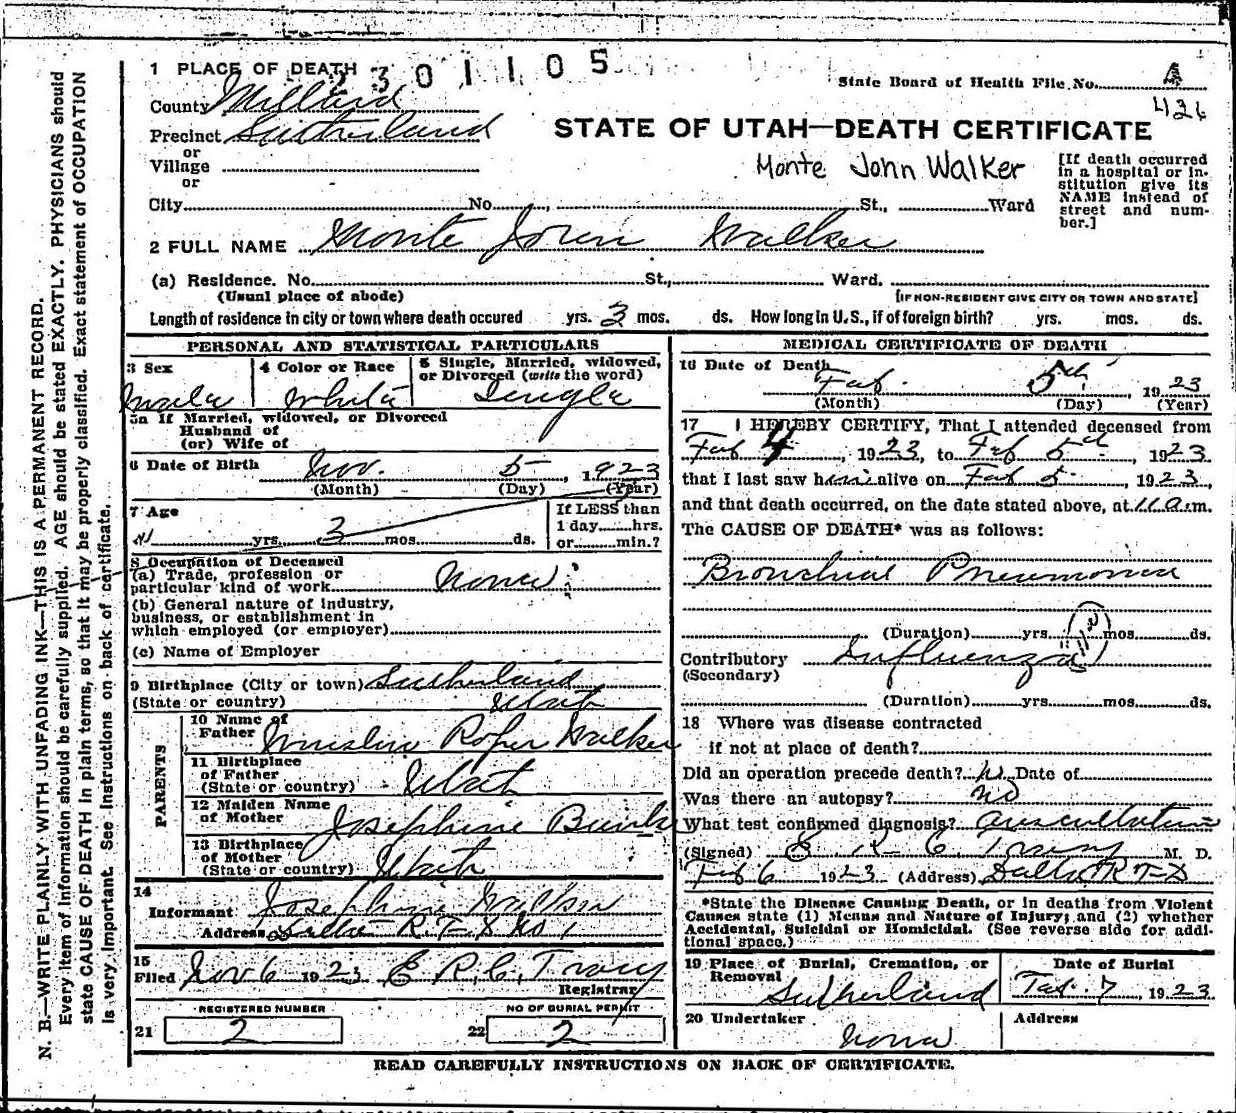 N. B.—WRITE PLAINLY WITH UNFADING INK—THIS IS A PERMANENT RECORD.
Every item of information should be carefully supplied. AGE should be stated EXACTLY. PHYSICIANS should
state CAUSE OF DEATH in plain terms, so that it may be properly classified. Exact statement of OCCUPATION
is very important. See instructions on back of certificate.
1 PLACE OF DEATH 2301105
State Board of Health File No. 
426
County Millard
Precinct Sutherland
STATE OF UTAH—DEATH CERTIFICATE
or
Village
or
Monte John Walker
[If death occurred
in a hospital or in-
stitution give its
NAME instead of
street and num-
ber.]
City No. St., Ward
2 FULL NAME Monte John Walker
(a) Residence. No. St., Ward.
(Usual place of abode) [IF NON-RESIDENT GIVE CITY OR TOWN AND STATE]
Length of residence in city or town where death occured yrs. 3 mos. ds. How long in U.S., if of foreign birth? yrs. mos. ds.
PERSONAL AND STATISTICAL PARTICULARS
3 Sex 4 Color or Race 5 Single, Married, widowed,
or Divorced (write the word)
Male White Single
5a If Married, widowed, or Divorced
Husband of
(or) Wife of
6 Date of Birth Nov. 5 , 1923
(Month) (Day) (Year)
7 Age If LESS than
1 day hrs.
yrs. 3 mos. ds. or min.?
8 Occupation of Deceased
(a) Trade, profession or
particular kind of work None
(b) General nature of industry,
business, or establishment in
which employed (or employer)
(c) Name of Employer
9 Birthplace (City or town) Sutherland
(State or country) Utah
PARENTS
10 Name of
Father Winslow Roper Walker
11 Birthplace
of Father
(State or country) Utah
12 Maiden Name
of Mother Josephine Bunker
13 Birthplace
of Mother
(State or country) Utah
14
Informant Josephine Walker
Address Delta R.F.D No 1
15
Filed Nov 6 1923 E R. C. Tracy
Registrar
REGISTERED NUMBER NO OF BURIAL PERMIT
21 2 22 2
MEDICAL CERTIFICATE OF DEATH
16 Date of Death
Feb. 5th , 1923
(Month) (Day) (Year)
17 I HEREBY CERTIFY, That I attended deceased from
Feb 4 , 1923, to Feb 5th , 1923
that I last saw him alive on Feb 5 , 1923,
and that death occurred, on the date stated above, at 11 a.m.
The CAUSE OF DEATH* was as follows:
Bronchial Pneumonia
(Duration) yrs. mos. ds.
Contributory Influenza
(Secondary)
(Duration) yrs. mos. ds.
18 Where was disease contracted
if not at place of death?
Did an operation precede death? No Date of
Was there an autopsy? no
What test confirmed diagnosis? Auscultation
(Signed) E. R. C. Tracy M. D.
Feb 6 1923 (Address) Delta R F D
*State the Disease Causing Death, or in deaths from Violent
Causes state (1) Means and Nature of Injury; and (2) whether
Accidental, Suicidal or Homicidal. (See reverse side for addi-
tional space.)
19 Place of Burial, Cremation, or
Removal Sutherland
Date of Burial
Feb. 7 , 1923
20 Undertaker None
Address
READ CAREFULLY INSTRUCTIONS ON BACK OF CERTIFICATE.